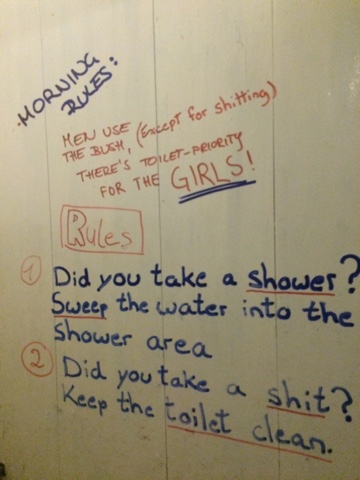 MORNING
RULES:
MEN USE
THE BUSH, (Except for shitting)
THERE'S TOILET-PRIORITY
FOR THE GIRLS!
Rules
1 Did you take a shower?
Sweep the water into the
shower area
2 Did you take a shit?
Keep the toilet clean.